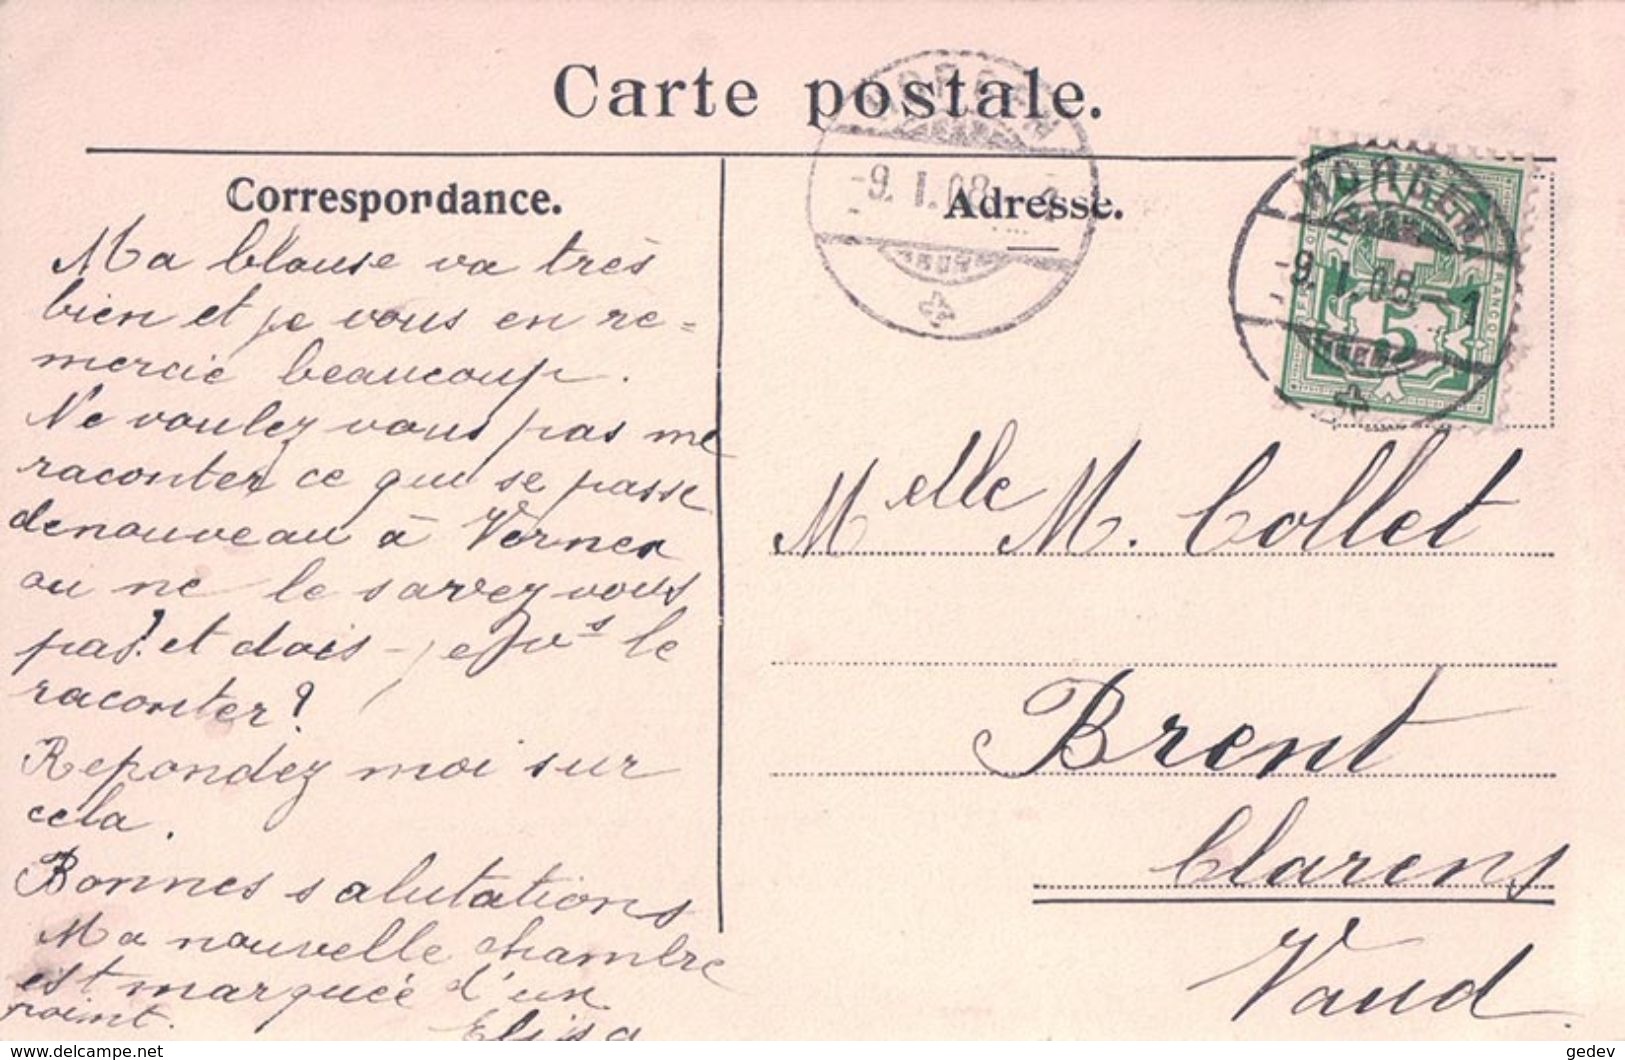 Carte postale.
Correspondance.
Ma blouse va très
bien et je vous en re=
mercie beaucoup.
Ne voulez vous pas me
raconter ce que se passe
denouveau à Vernex
ou ne le savez vous
pas? et dois-je vs le
raconter?
Repondez moi sur
cela.
Bonnes salutations
Ma nouvelle chambre
est marquée d'un
point.
Elisa
HORGEN
-9.I.08.-1
Adresse.
HORGEN
-9.I.08.-1
FRANCO
5
Melle M. Collet
Brent
Clarens
Vaud.
gedev